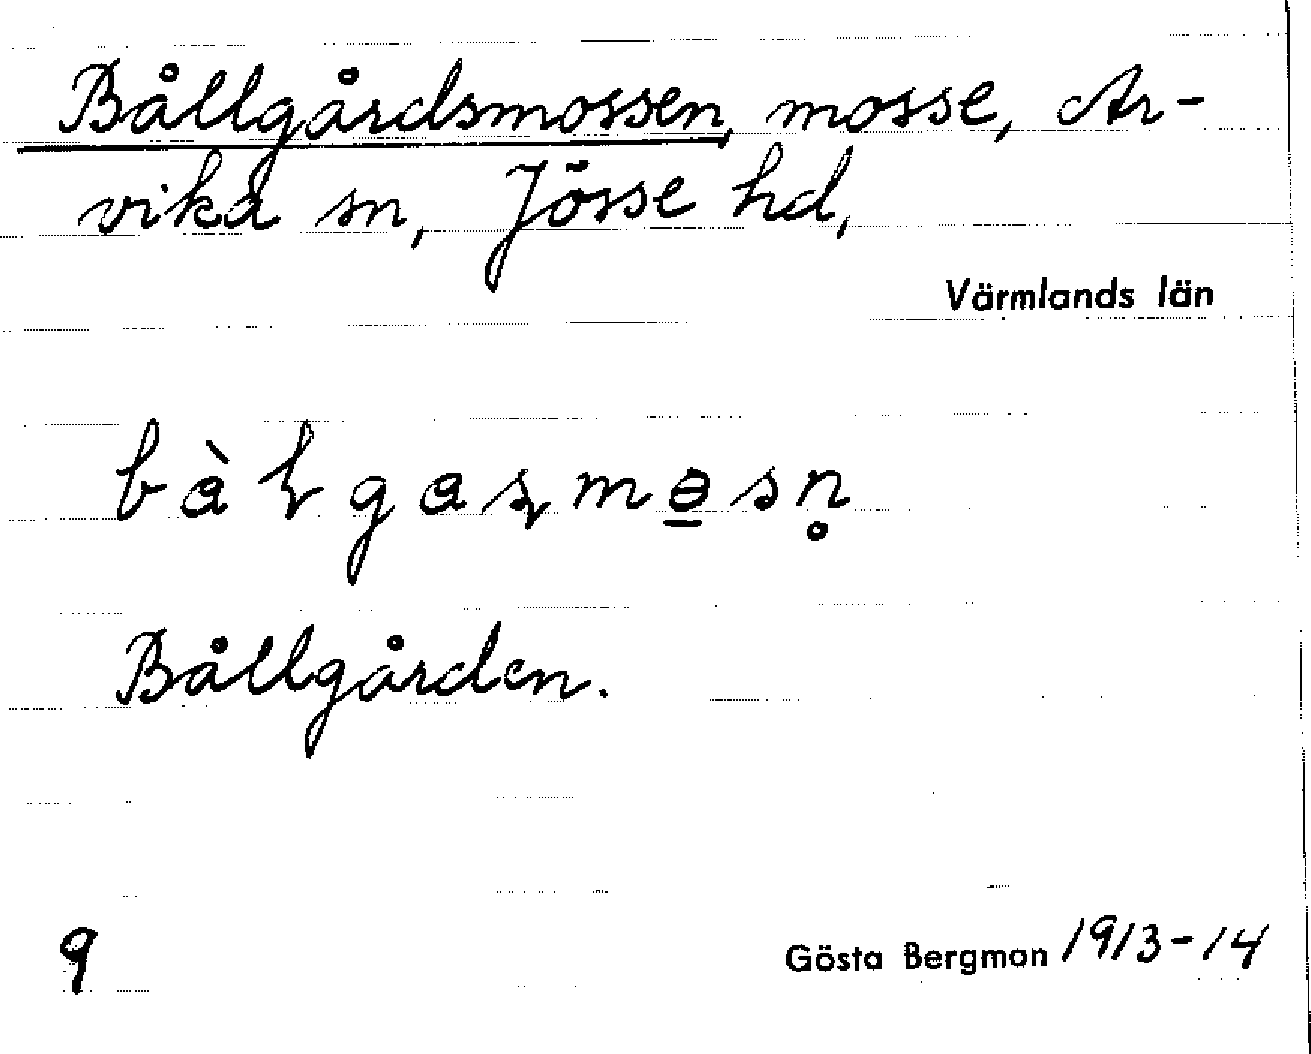 Bållgårdsmossen, mosse, Ar-
vika sn, Jösse hd,
Värmlands län
Bållgården.
9
Gösta Bergman 1913-14